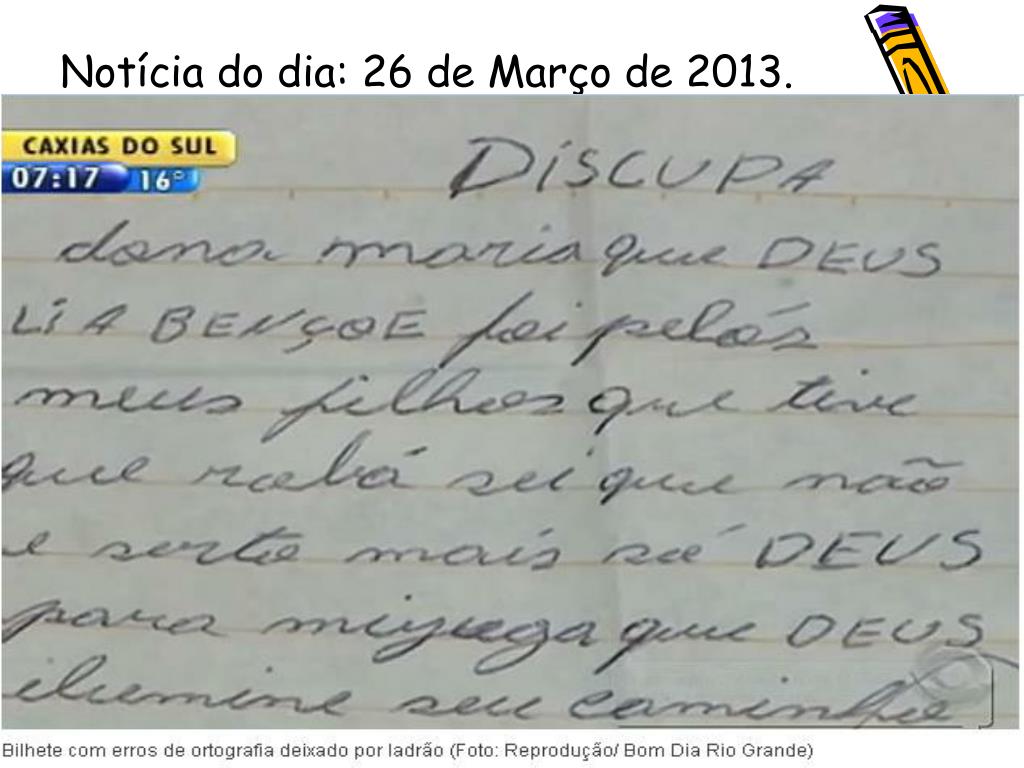 Notícia do dia: 26 de Março de 2013.
CAXIAS DO SUL
07:17 16°
DISCUPA
dona maria que DEUS
LiA BENÇOE foi pelós
meus filhos que tive
que robá sei que não
e serto mais só DEUS
para mijuga que DEUS
ilumine seu caminho
Bilhete com erros de ortografia deixado por ladrão (Foto: Reprodução/ Bom Dia Rio Grande)